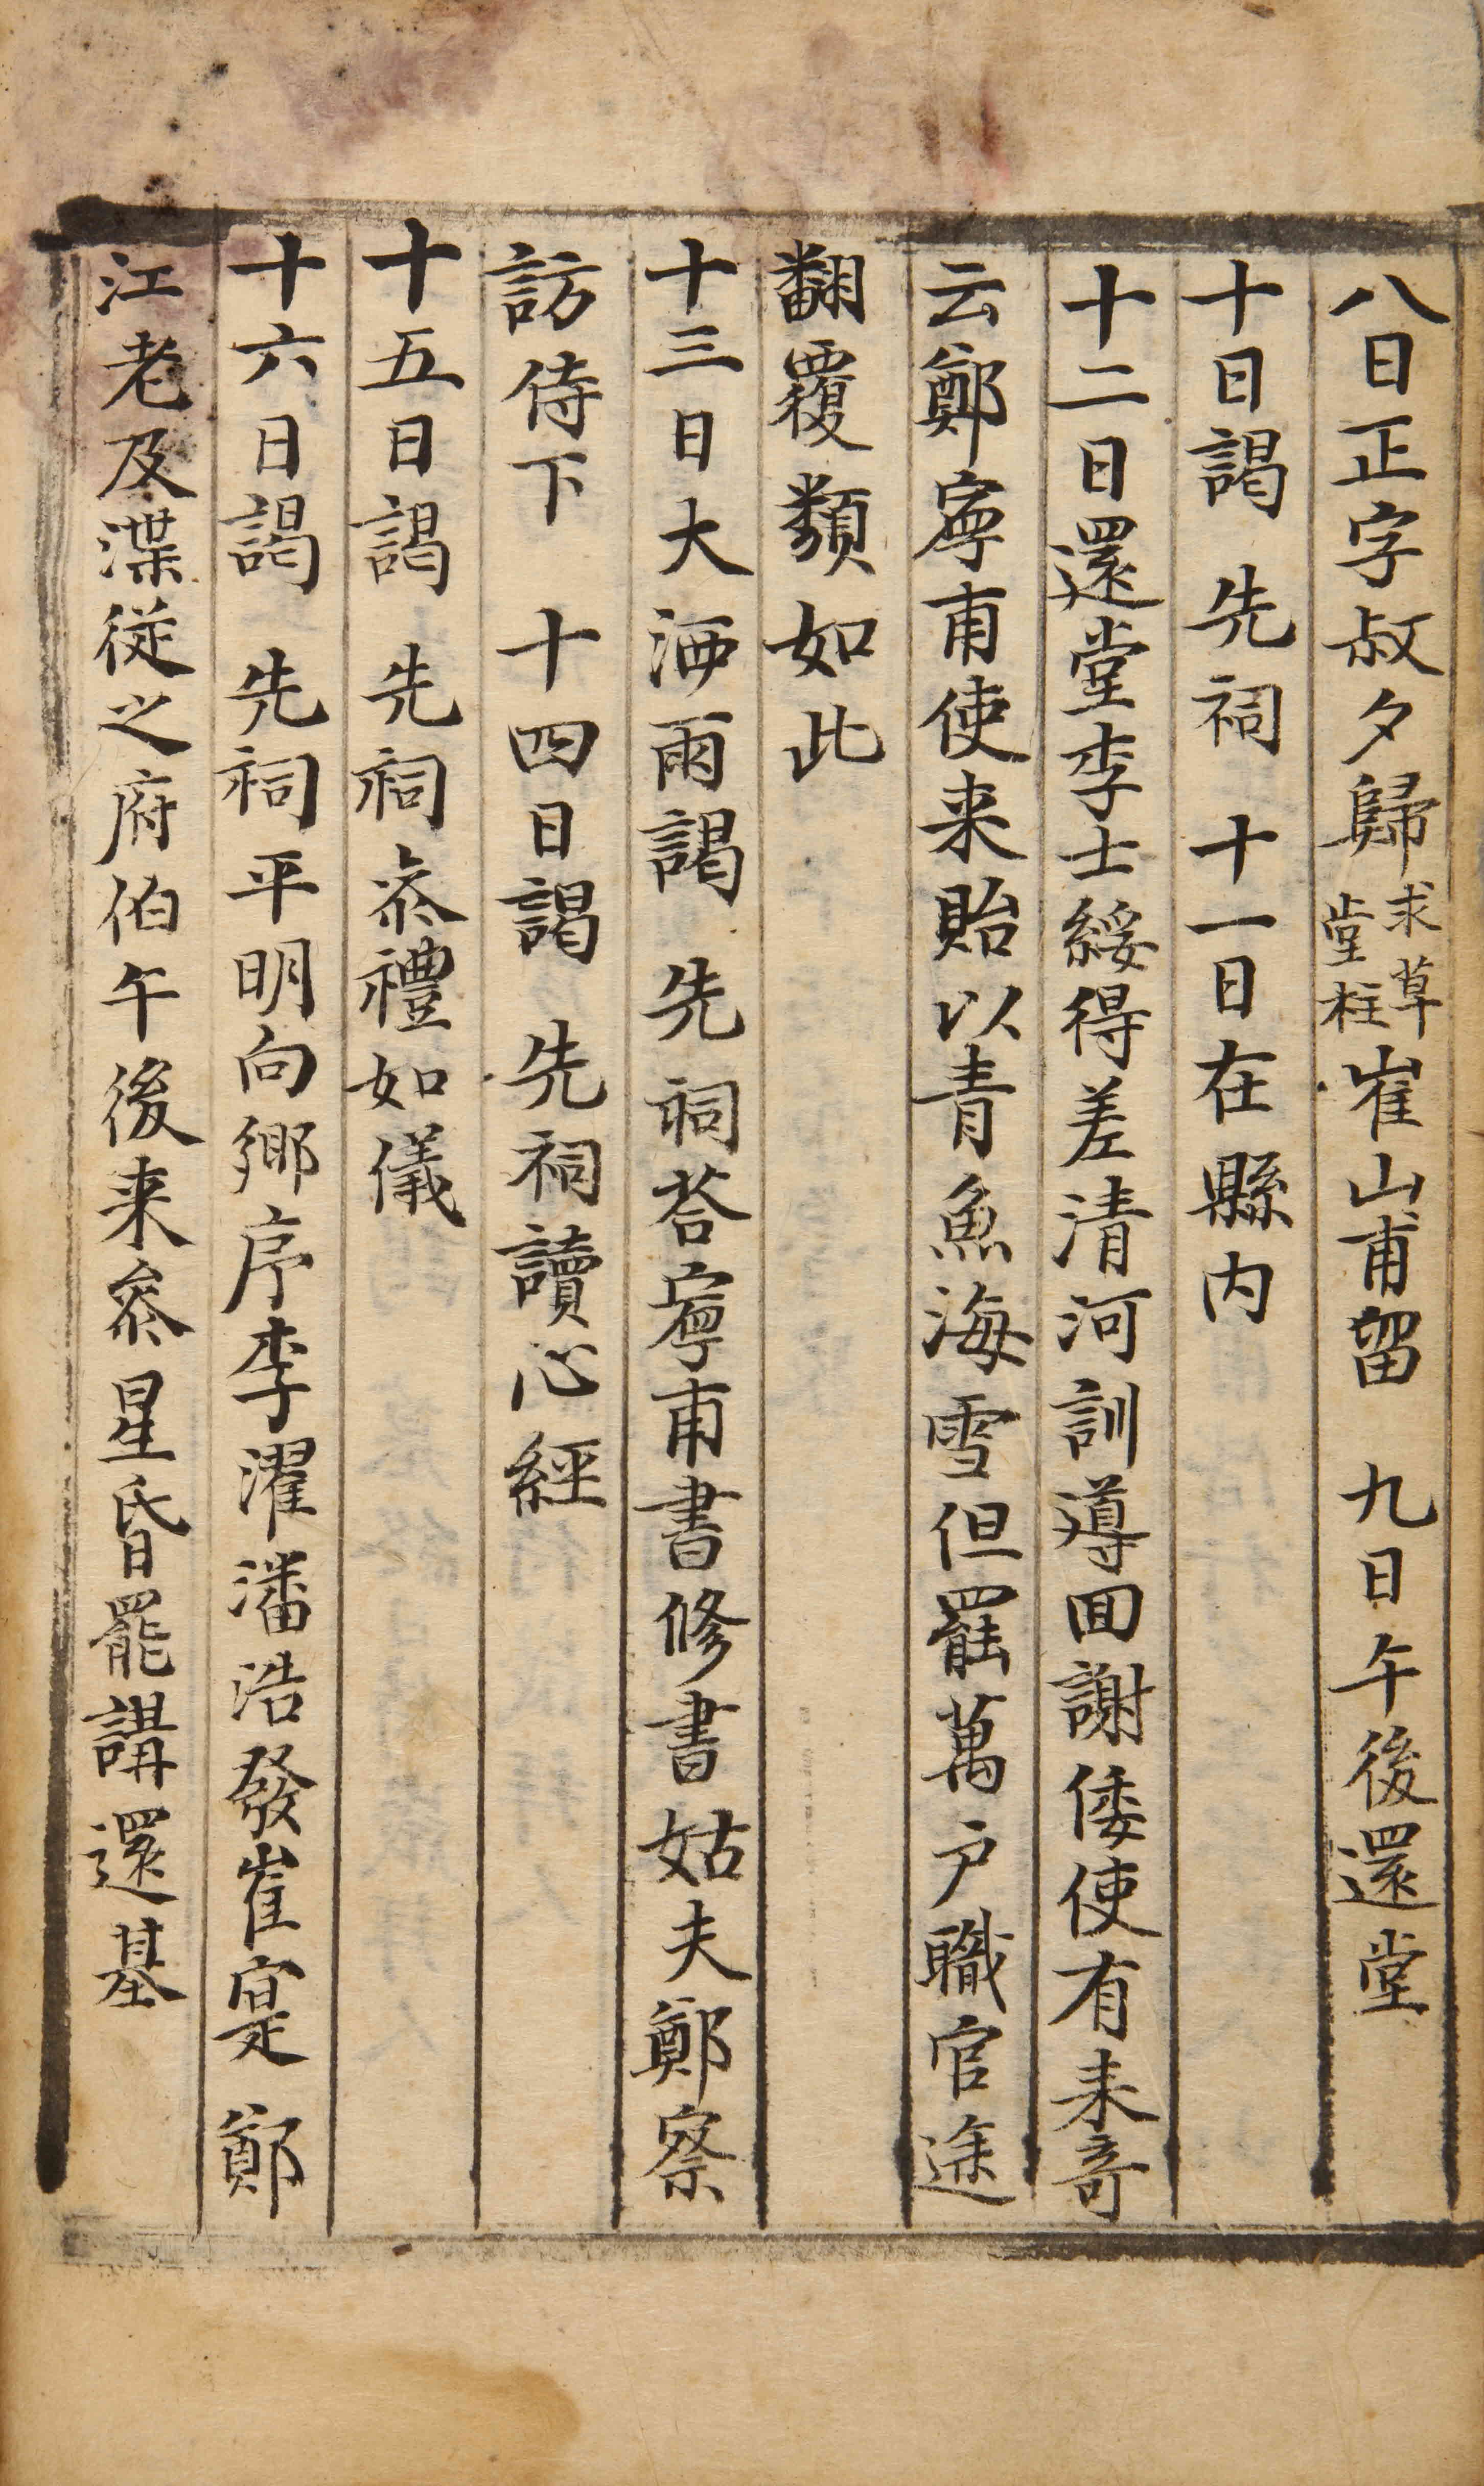 八日正字叔夕歸求草堂柱崔山甫留 九日午後還堂
十日謁 先祠 十一日在縣内
十二日還堂李士綏得差清河訓導回謝倭使有来奇
云鄭寧甫使来貽以青魚海雪但罷萬户職官途
翻覆類如此
十三日大洒雨謁 先祠荅寧甫書修書姑夫鄭察
訪侍下 十四日謁 先祠讀心經
十五日謁 先祠叅禮如儀
十六日謁 先祠平明向鄉序李濯潘浩發崔寔 鄭
江老及渫從之府伯午後来叅星昏罷講還基